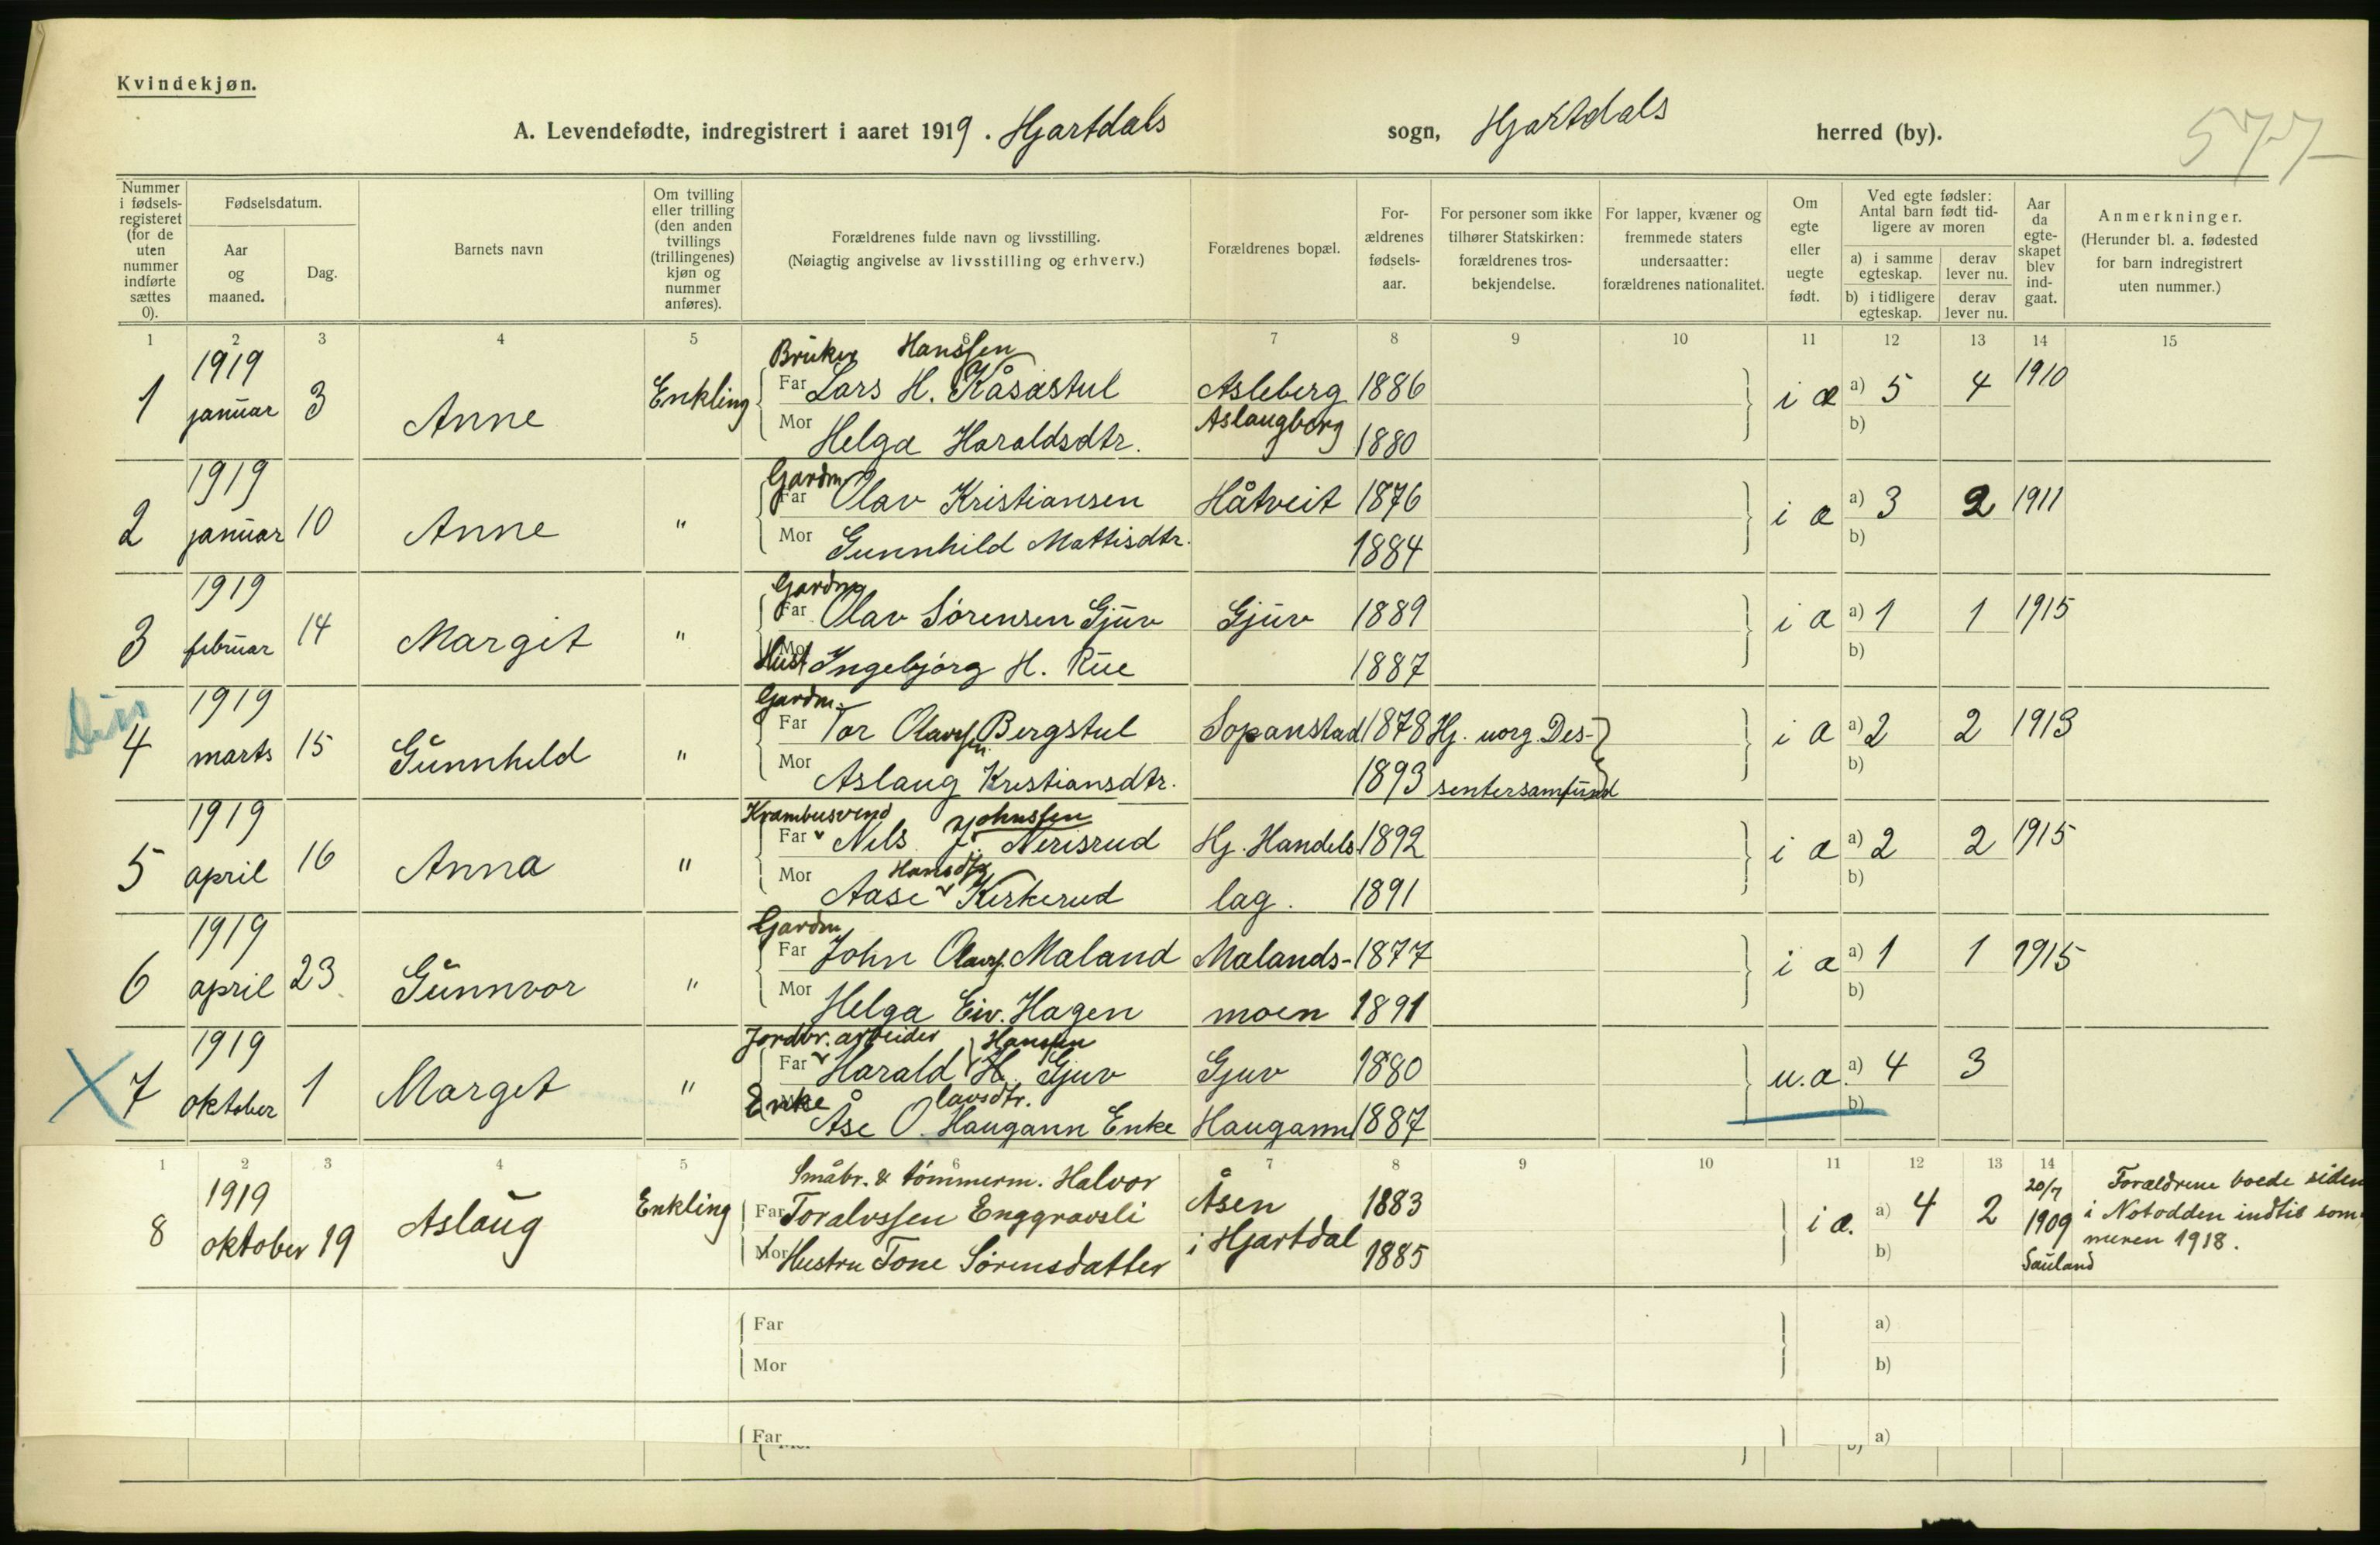 Kvindekjøn.
A. Levendefødte, indregistrert i aaret 1919. Hjartdals sogn, Hjartdals herred (by).
577
Nummer i fødselsregisteret (for de uten nummer indførte sættes 0).
Fødselsdatum.
Aar og maaned.
Dag.
Barnets navn
Om tvilling eller trilling (den anden tvillings (trillingenes) kjøn og nummer anføres).
Forældrenes fulde navn og livsstilling.
(Nøiagtig angivelse av livsstilling og erhverv.)
Forældrenes bopæl.
Forældrenes fødselsaar.
For personer som ikke tilhører Statskirken: forældrenes trosbekjendelse.
For lapper, kvæner og fremmede staters undersaatter: forældrenes nationalitet.
Om egte eller uegte født.
Ved egte fødsler: Antal barn født tidligere av moren
a) i samme egteskap.
derav lever nu.
b) i tidligere egteskap.
derav lever nu.
Aar da egteskapet blev indgaat.
Anmerkninger.
(Herunder bl. a. fødested for barn indregistrert uten nummer.)
1 2 3 4 5 6 7 8 9 10 11 12 13 14 15
1919 Bruker Hanssen
1 januar 3 Anne Enkling Far Lars H. Kåsastul Asleberg 1886 i æ a) 5 4 1910
Mor Helga Haraldsdtr. Aslaugberg 1880 b)
1919 Gardm
2 januar 10 Anne " Far Olav Kristiansen Håtveit 1876 i æ a) 3 2 1911
Mor Gunnhild Mattisdtr. 1884 b)
1919 Gardm
3 februar 14 Margit " Far Olav Sørensen Gjuv Gjuv 1889 i æ a) 1 1 1915
Mor Hust Ingebjørg H. Rue 1887 b)
1919 Gardm.
4 marts 15 Gunnhild " Far Tor Olavssen Bergstul Sopanstad 1878 Hj. uorg. Des- i æ a) 2 2 1913
Mor Aslaug Kristiansdtr. 1893 sentersamfund b)
1919 Krambusvend Johnssen
5 april 16 Anna " Far Nils J. Nerisrud Hj. Handels 1892 i æ a) 2 2 1915
Mor Aase Hansdtr Kirkerud lag. 1891 b)
1919 Gardm
6 april 23 Gunnvor " Far John Olavs. Maland Malands- 1877 i æ a) 1 1 1915
Mor Helga Eiv. Hagen moen 1891 b)
1919 Jordbr. arbeider Hanssen
7 oktober 1 Margit " Far Harald H. Gjuv Gjuv 1880 u.æ. a) 4 3
Enke Åse Olavsdtr. Haugann Enke Haugann 1887 b)
1 2 3 4 5 6 7 8 9 10 11 12 13 14
1919 Småbr. & tømmerm. Halvor
8 oktober 19 Aslaug Enkling Far Toralvssen Enggravsli Åsen 1883 i æ. a) 4 2 20/7 1909 Sauland
Mor Hustru Tone Sørensdatter i Hjartdal 1885 b)
Forældrene boede siden
i Notodden indtil som-
meren 1918.
Far a)
Mor b)
Far a)